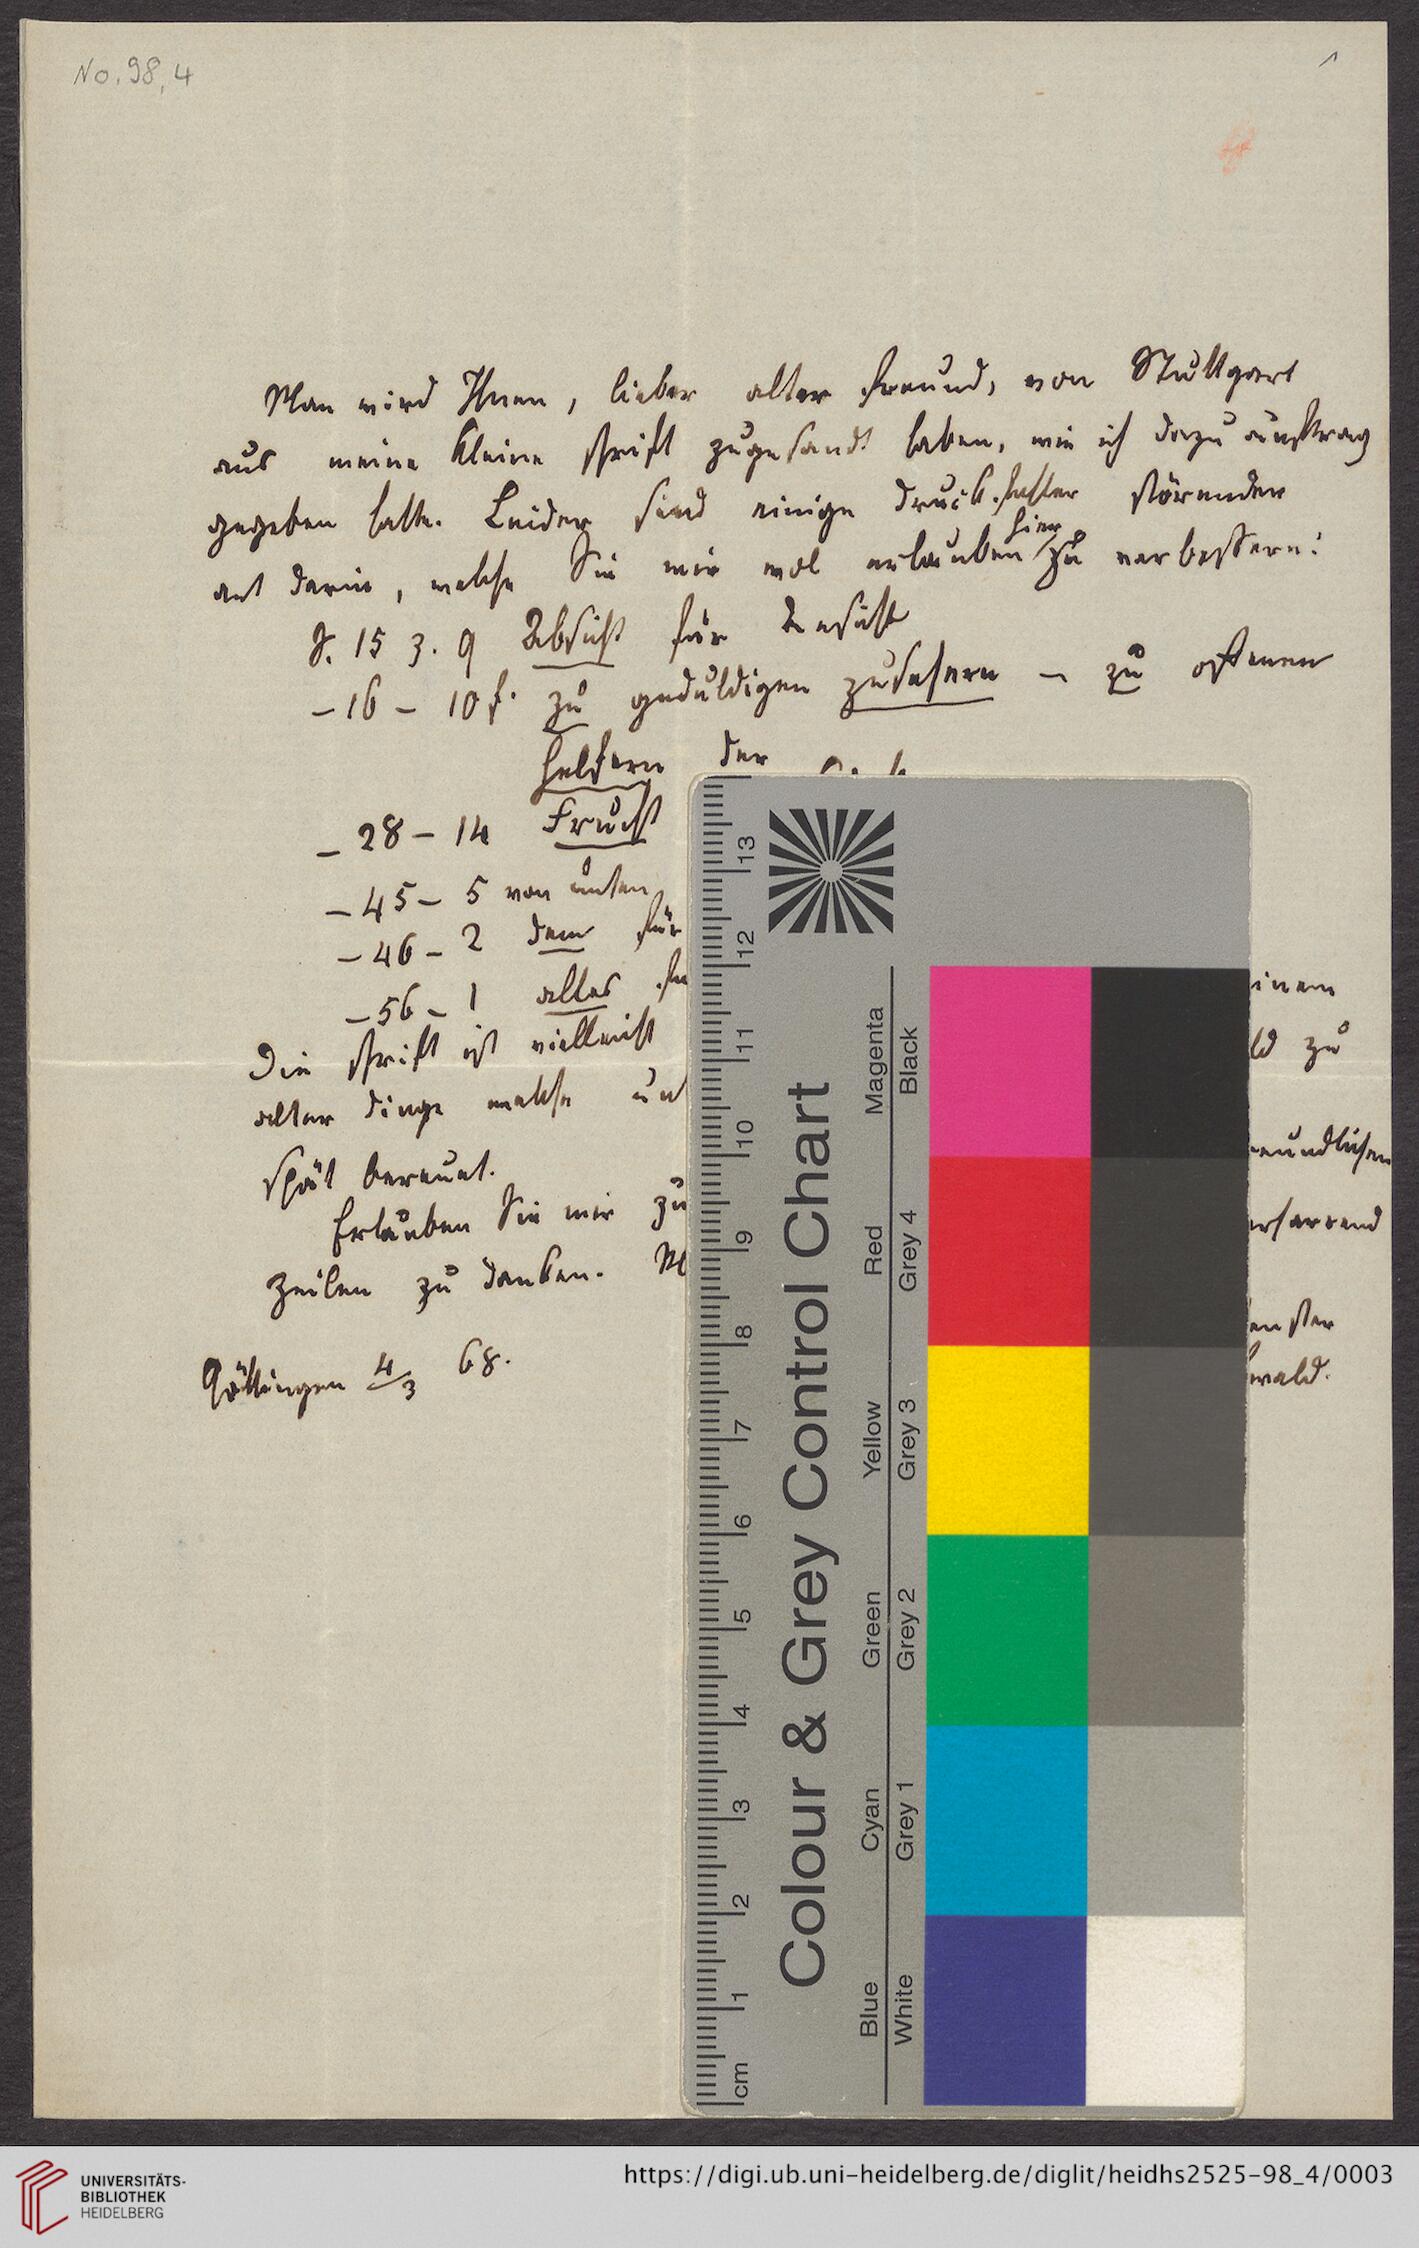 No. 98,4
1
Man wird Ihnen, lieber alter freund, von Stuttgart
aus meine kleine schrift zugesandt haben, wie ich dazu auftrag
gegeben hatte. Leider sind einige druckfehler störender
art darin, welche Sie mir wol erlauben hier zu verbessern:
S. 15 z. 9 Absicht für Ansicht
– 16 – 10 f. zu geduldigen zuhörern – zu offenen
feldern der
– 28 – 14 Frucht
– 45 – 5 von unten
– 46 – 2 dem für
– 56 – 1 altes
Die schrift ist vielleicht
alter dinge welche
spät bereuet.
Erlauben Sie mir zu
zeilen zu danken.
Göttingen 4/3 68.
inem
ld zu
reundlichen
erharrend
enster
wald.
13
12
11
10
9
8
7
6
5
4
3
2
1
cm
Colour & Grey Control Chart
Magenta
Red
Yellow
Green
Cyan
Blue
Black
Grey 4
Grey 3
Grey 2
Grey 1
White
UNIVERSITÄTS-
BIBLIOTHEK
HEIDELBERG
https://digi.ub.uni-heidelberg.de/diglit/heidhs2525-98_4/0003